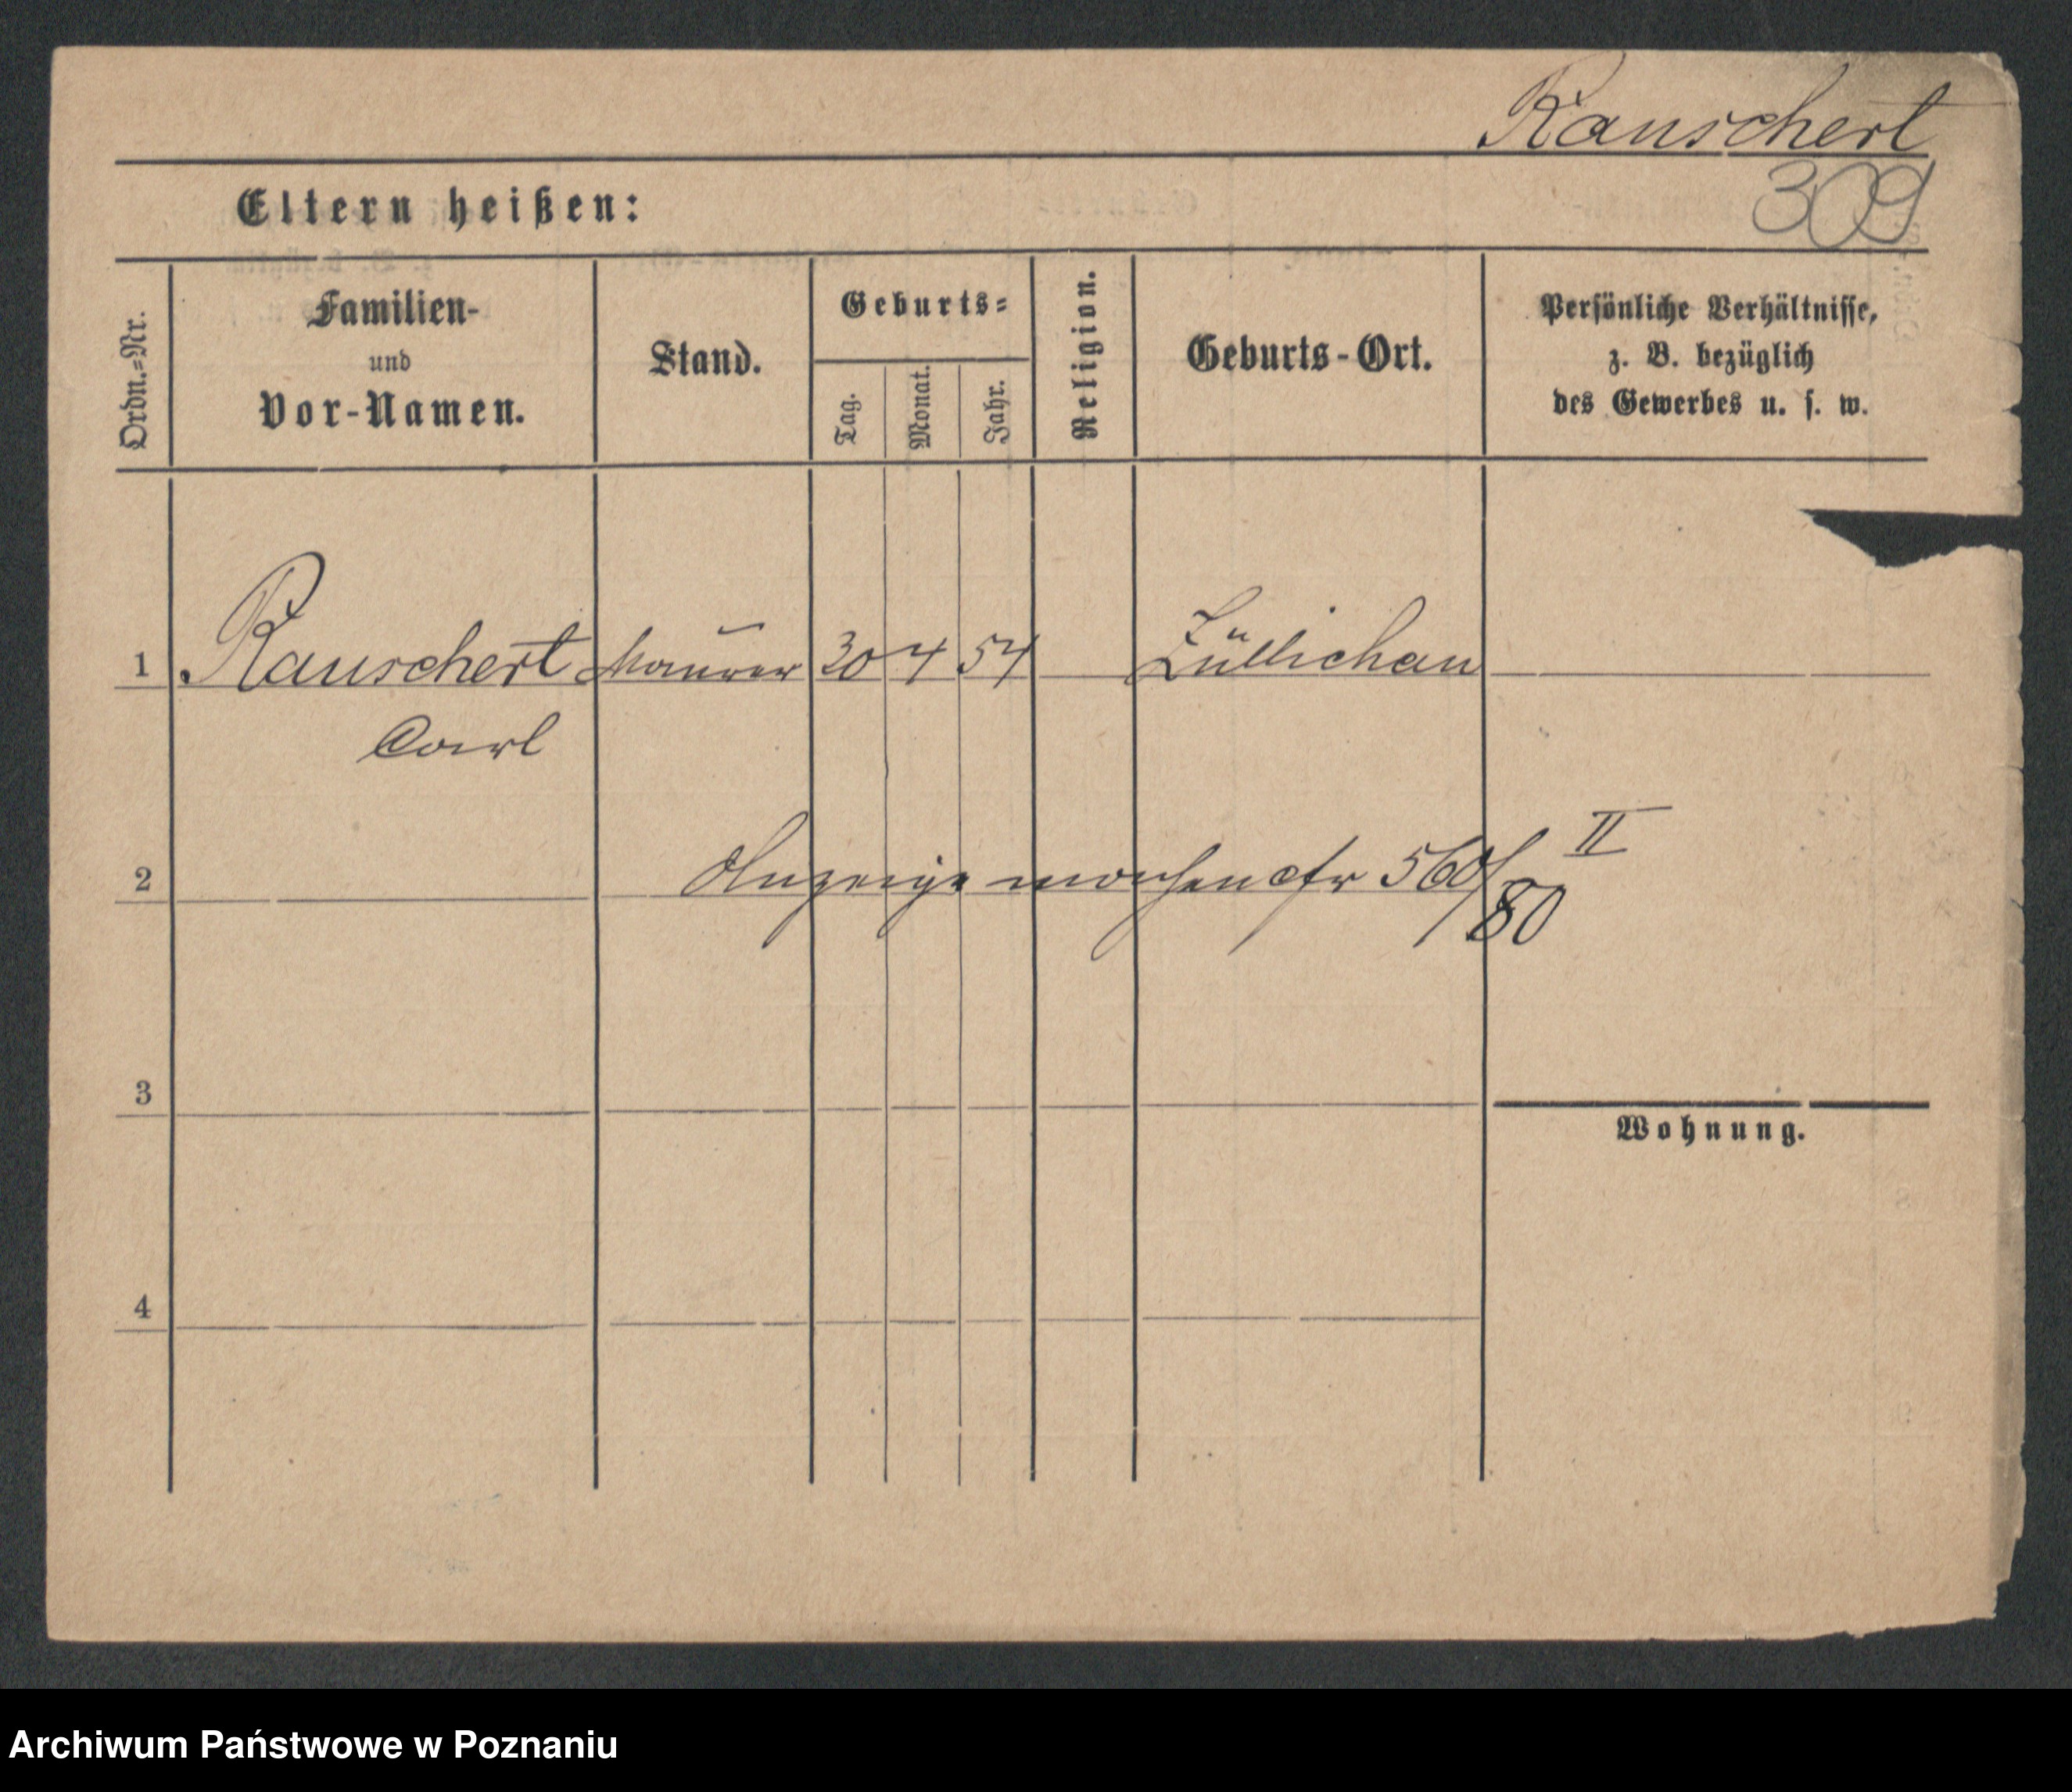 Rauschert
309
Eltern heißen:
Ordn.-Nr.
Familien-
und
Vor-Namen.
Stand.
Geburts-
Tag.
Monat.
Jahr.
Religion.
Geburts-Ort.
Persönliche Verhältnisse,
z. B. bezüglich
des Gewerbes u. s. w.
1 Rauschert Maurer 30 4 54 Züllichau
Carl
2 Anzeige machen cfr 560/80 II
3
Wohnung.
4
Archiwum Państwowe w Poznaniu